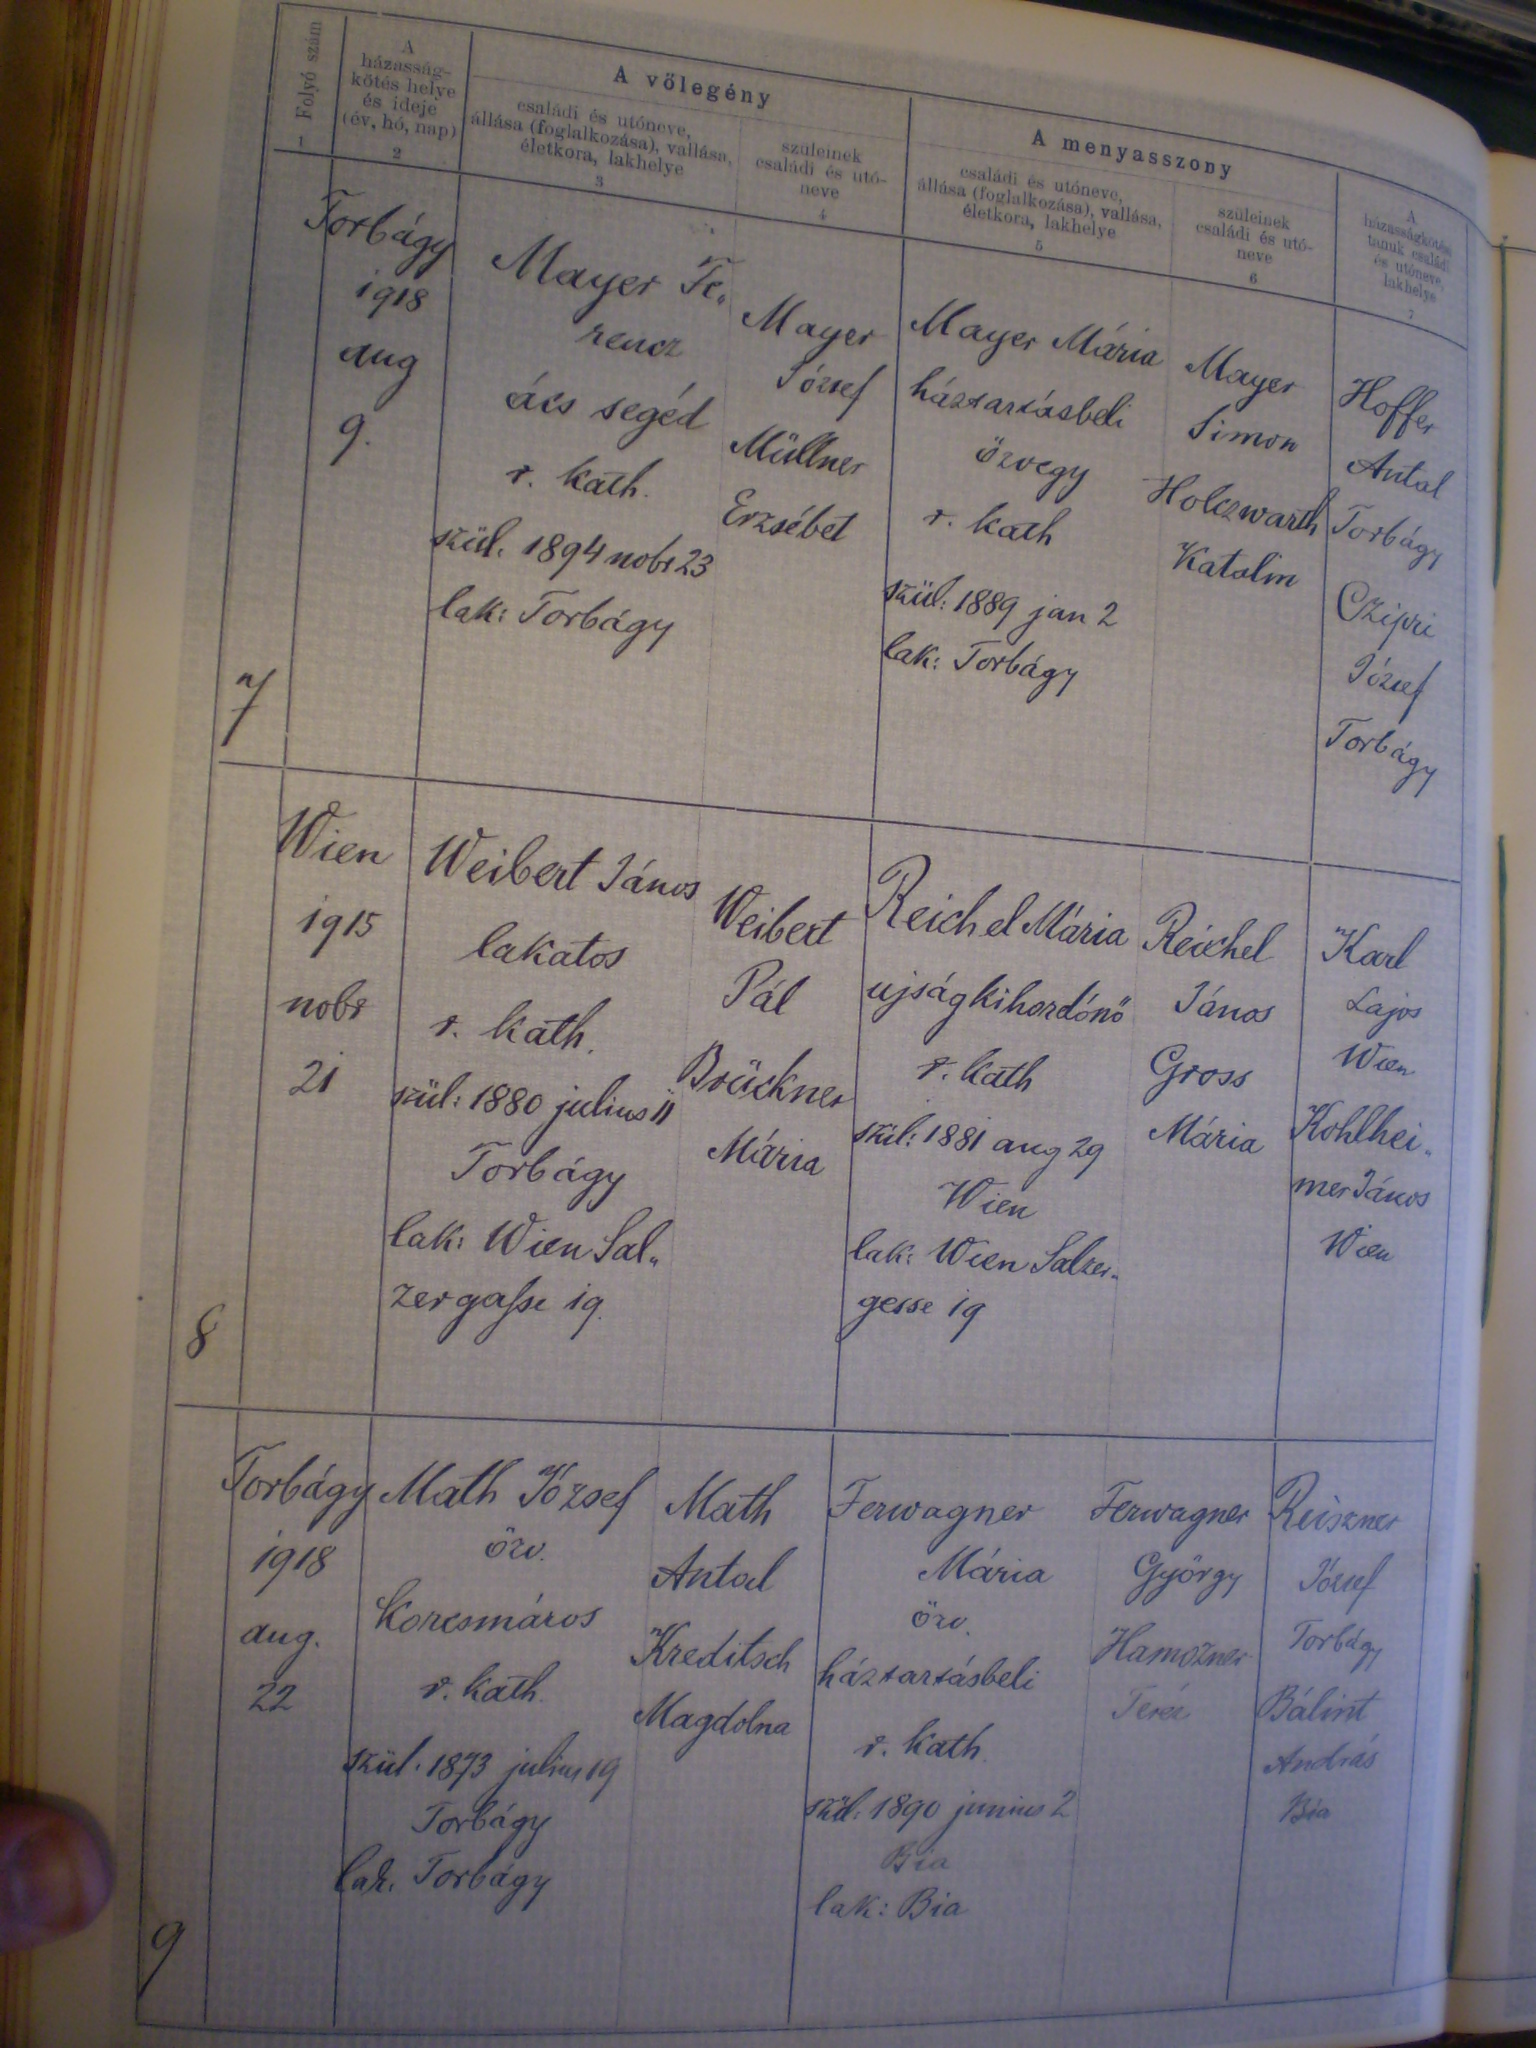 Folyó szám
1
A
házasság-
kötés helye
és ideje
(év, hó, nap)
2
A vőlegény
családi és utóneve,
állása (foglalkozása), vallása,
életkora, lakhelye
3
szüleinek
családi és utó-
neve
4
A menyasszony
családi és utóneve,
állása (foglalkozása), vallása,
életkora, lakhelye
5
szüleinek
családi és utó-
neve
6
A
házasságkötési
tanuk családi
és utóneve,
lakhelye
7
7
Torbágy
1918
aug
9.
Mayer Fe„
rencz
ács segéd
r. kath.
szül. 1894 nobr 23
lak: Torbágy
Mayer
József
Müllner
Erzsébet
Mayer Mária
háztartásbeli
özvegy
r. kath
szül: 1889 jan 2
lak: Torbágy
Mayer
Simon
Holczwarth
Katalin
Hoffer
Antal
Torbágy
Czipri
József
Torbágy
8
Wien
1915
nobr
21
Weibert János
lakatos
r. kath.
szül: 1880 julius 11
Torbágy
lak: Wien Sal„
zergasse 19.
Weibert
Pál
Brückner
Mária
Reichel Mária
ujságkihordónő
r. kath
szül: 1881 aug 29
Wien
lak: Wien Salzer„
gesse 19
Reichel
János
Gross
Mária
Karl
Lajos
Wien
Kohlhei„
mer János
Wien
9
Torbágy
1918
aug.
22
Math József
özv.
korcsmáros
r. kath.
szül. 1873 julius 19
Torbágy
lak. Torbágy
Math
Antal
Kreditsch
Magdolna
Ferwagner
Mária
özv.
háztartásbeli
r. kath.
szül: 1890 junius 2
Bia
lak: Bia
Ferwagner
György
Hamozner
Teréz
Reiszner
József
Torbágy
Bálint
András
Bia